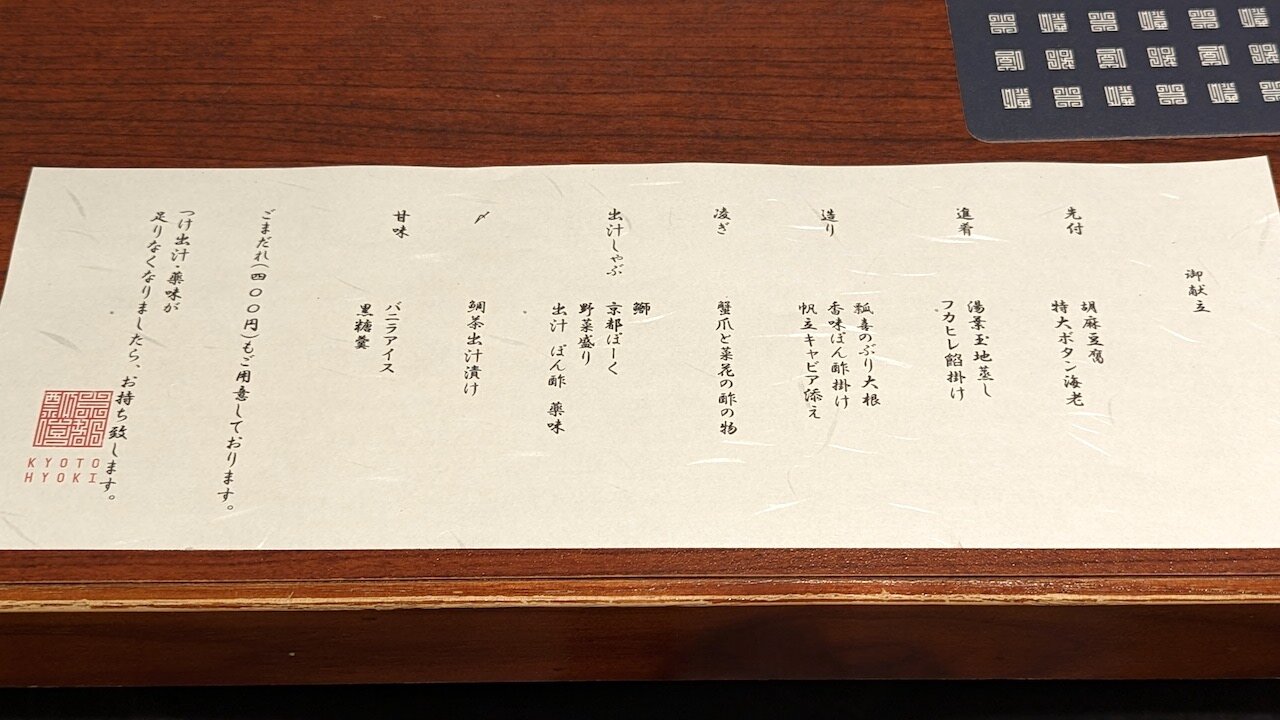 御献立
先付
胡麻豆腐
特大ボタン海老
進肴
湯葉玉地蒸し
フカヒレ餡掛け
造り
瓢喜のぶり大根
香味ぽん酢掛け
帆立キャビア添え
凌ぎ
蟹爪と菜花の酢の物
出汁しゃぶ
鰤
京都ぽーく
野菜盛り
出汁 ぽん酢 薬味
〆
鯛茶出汁漬け
甘味
バニラアイス
黒糖羹
ごまだれ(四〇〇円)もご用意しております。
つけ出汁・薬味が
足りなくなりましたら、お持ち致します。
京都瓢喜
KYOTO
HYOKI